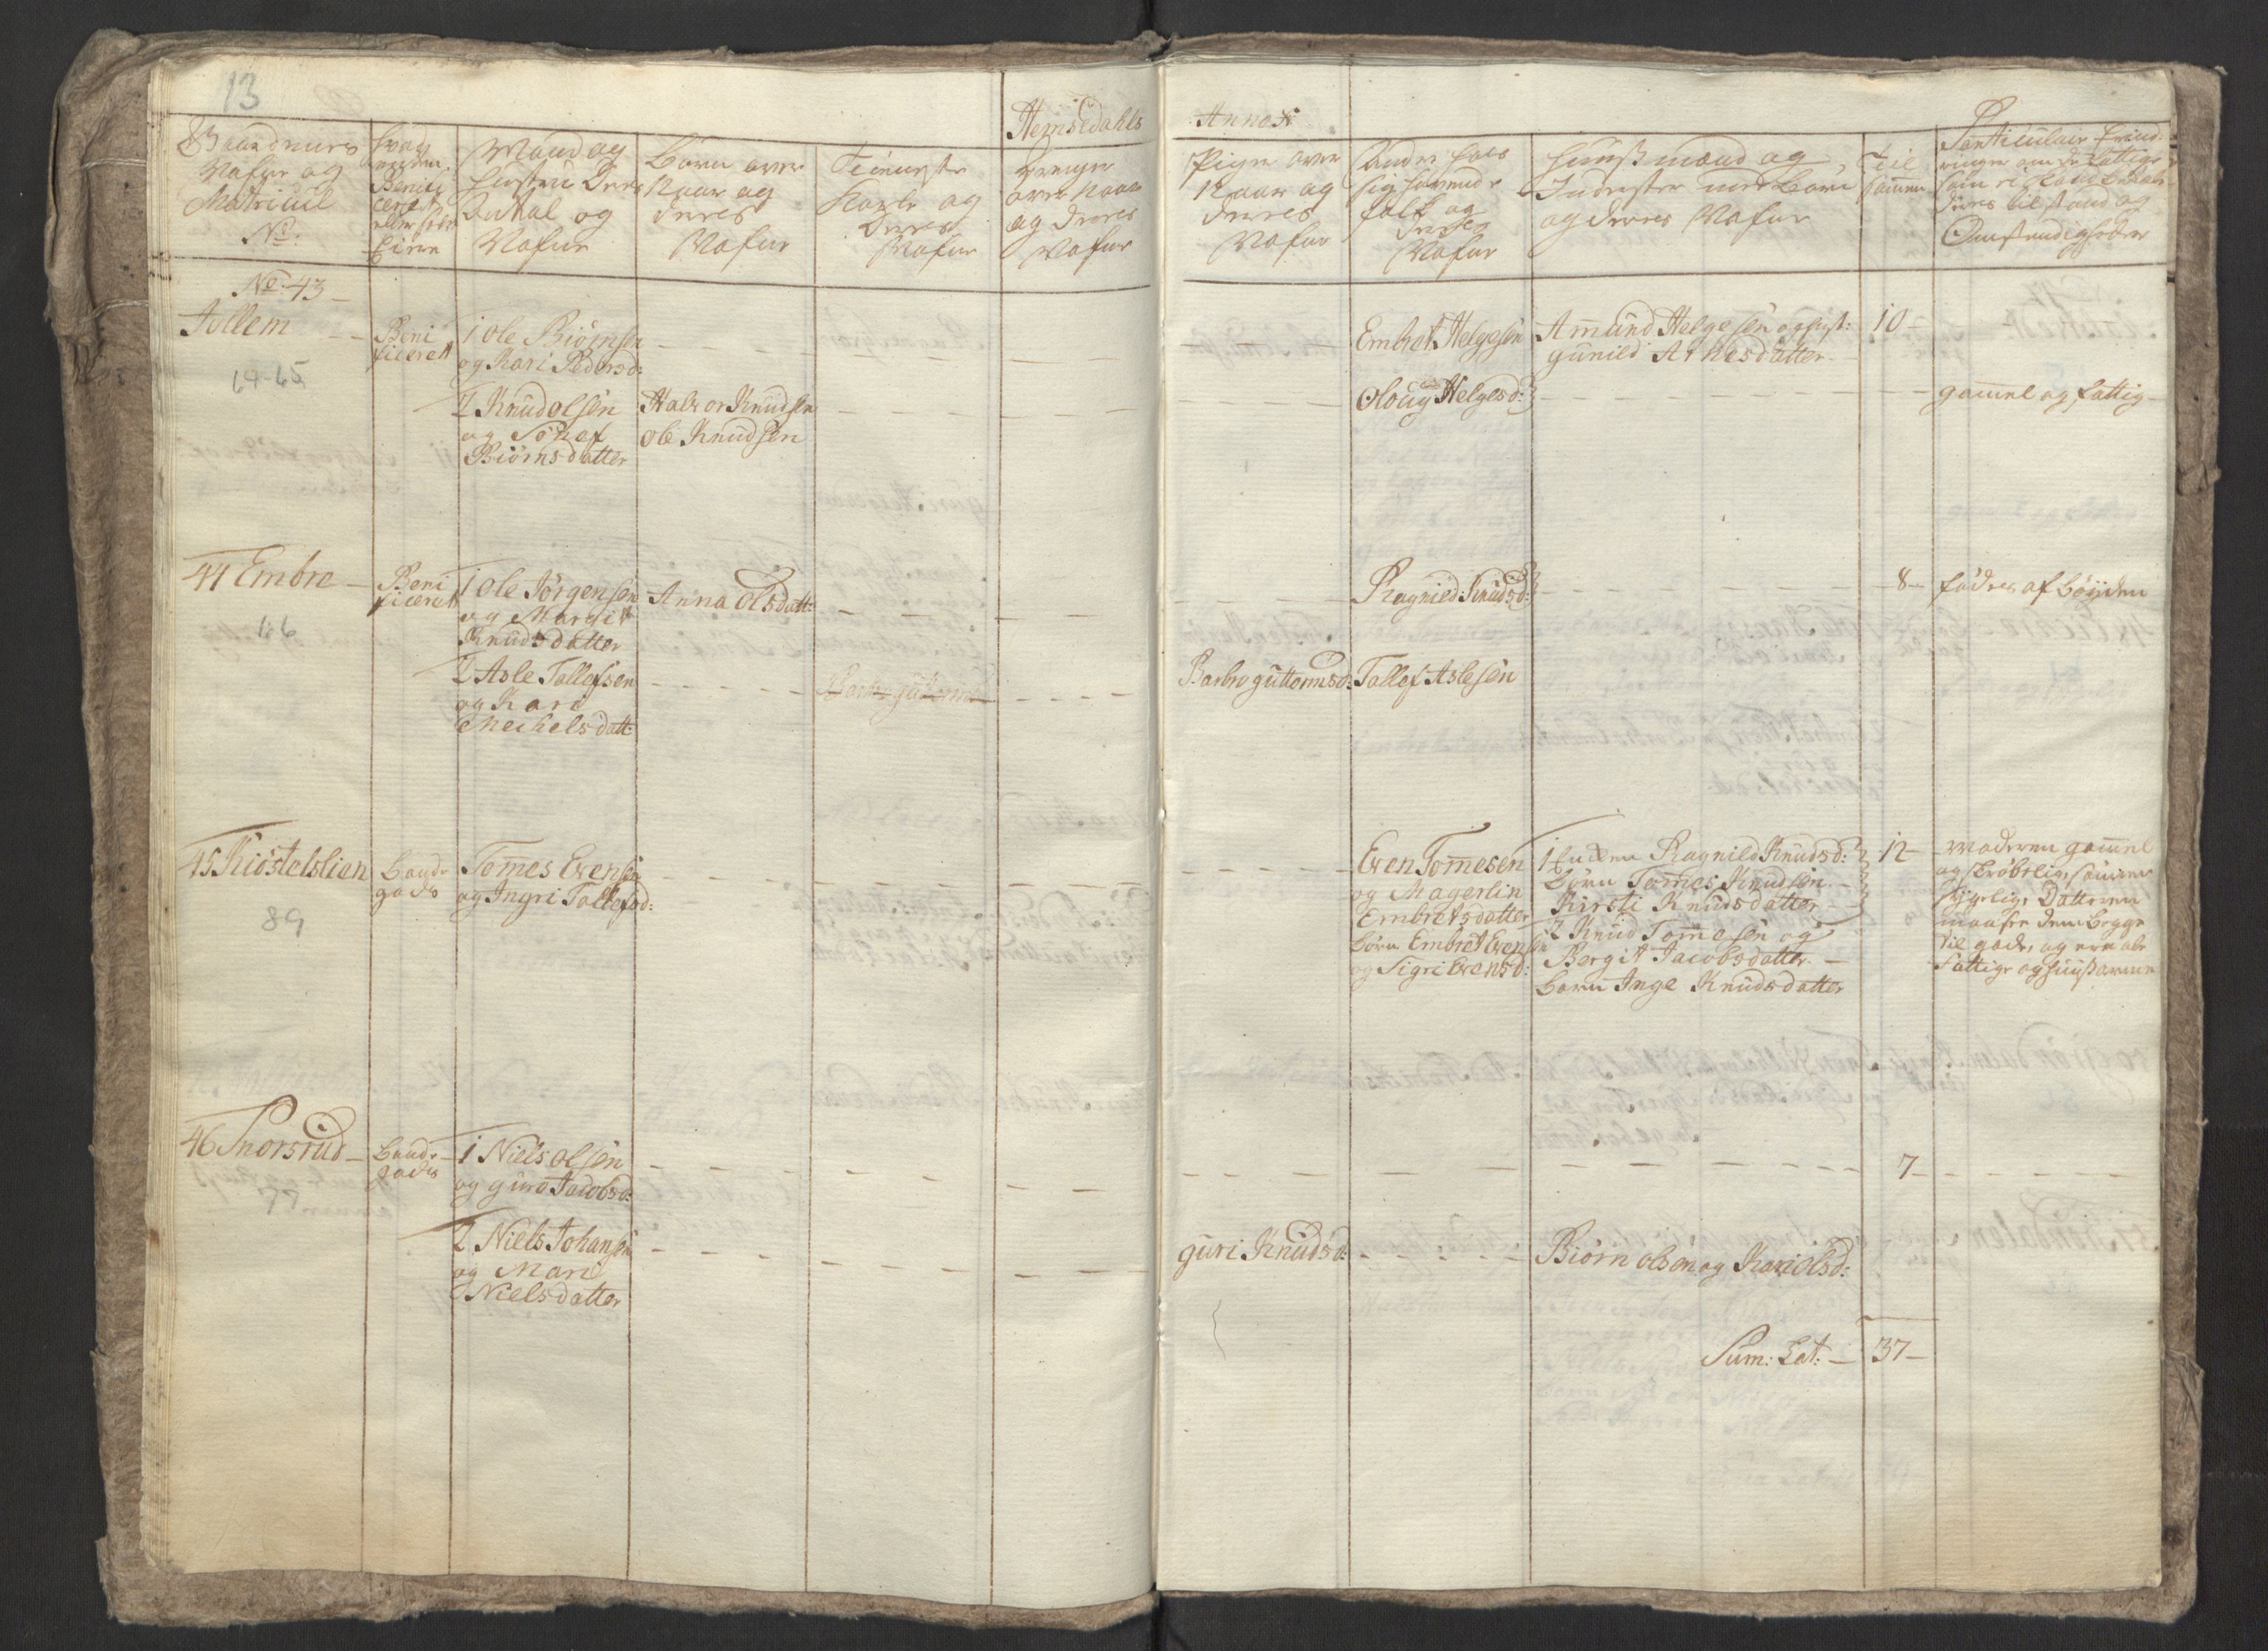 13
Hemsedahls
Annox
Gaardnes
Nafne og
Matricul
No:
Beneficeret
eller
Eiere
Mand og
Hustru Deres
Antal og
Nafne
Børn over
12 aar og
deres
Nafne
Tieniste
Karle og
Deres
Nafne
Drenge
over 12 aar
og deres
Nafne
Piger over
12 aar og
deres
Nafne
Andre hos
sig havende
folk og
Nafne
Huusmænd og
Inderster med børn
og deres Nafne
Til
sammen
som
tilstand og
Omstændigheder
No: 43
Jullem
64-65
Beni
ficeret
1 Ole Biørnsen
og Kari Pedersd:
Embret Helgesen
Amund Helgesen og hust:
gunild Arnesdatter
10
2 Knud olsen
og Sønef
Biørnsdatter
Halvor Knudsen
ole Knudsen
Oloug Helgesd:
gamel og fattig
44 Embre
66
Beni
ficeret
1 Ole Jørgensen
og Margit
Knudsdatter
Anna olsdatt:
Ragnild Knudsd:
8
fødes af bøyden
2 Asle Tollefsen
og Kari
Mechelsdatt:
Barbro guttormsd:
Tollef Aslesen
45 Kiøstelslien
89
Bonde
gods
Tomes Evensen
og Ingri Tollefsd:
Even Tomesen
og Magerlin
Embretsdatter
børn Embret Evensen
og Sigri Evensd:
1 Enken Ragnild Knudsd:
børn Tomes Knudsen
Kirsti Knudsdatter
2 Knud Tomesen og
Bergit Jacobsdatter
barn Inge Knudsdatter
12
moderen gammel
og skrøbelig, sønnen
sygelig, Datteren
maa see dem begge
til gode, og ere alle
fattige og huusarme
46 Snorsrud
77
Bonde
gods
1 Niels olsen
og guro Jacobsd:
7
2 Niels Johansen
og Mari
Nielsdatter
guri Knudsd:
Biørn olsen og Kari olsd:
Sum: Lat:
37